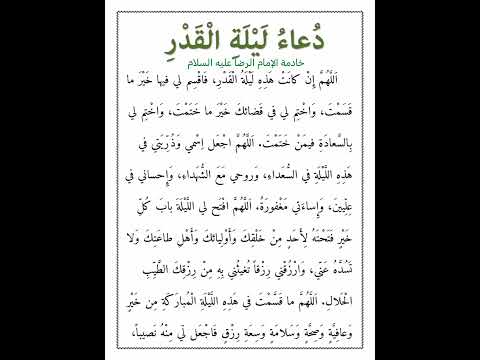 دُعاءُ لَيْلَةِ الْقَدْرِ
خادمة الإمام الرضا عليه السلام
اَللَّهُمَّ إِنْ كانَتْ هَذِهِ لَيْلَةُ الْقَدْرِ، فَاقْسِم لي فيها خَيْرَ ما
قَسَمْتَ، وَاخْتِم لي في قَضائكَ خَيْرَ ما خَتَمْتَ، وَاخْتِم لي
بِالسَّعادَةِ فيمَنْ خَتَمْتَ. اَللَّهُمَّ اجْعَل اِسْمي وَذُرِيَتي في
هَذِهِ اللَّيْلَةِ في السُّعَداءِ، وَروحي مَعَ الشُّهَداءِ، وَإِحساني في
عِلِّيينَ، وَإِساءَتي مَغْفورَةً. اَللَّهُمَّ افْتَح لي اللَّيْلَةَ بابَ كُلِّ
خَيْرٍ فَتَحْتَهُ لِأَحَدٍ مِنْ خَلْقِكَ وَأَوْلِيائكَ وَأَهْلِ طاعَتكَ وَلا
تَسُدَّهُ عَنّي، وَارْزُقْني رِزْقاً تُغيثُني بِهِ مِنْ رِزْقِكَ الطَّيِّبِ
الْحَلالِ. اَللَّهُمَّ ما قَسَّمْتَ في هَذِهِ اللَّيْلَةِ الْمُبارَكَةِ مِن خَيْرٍ
وَعافِيَةٍ وَصِحَّةٍ وَسَلامَةٍ وَسِعَةِ رِزْقٍ فَاجْعَل لّي مِنْهُ نَصيباً،